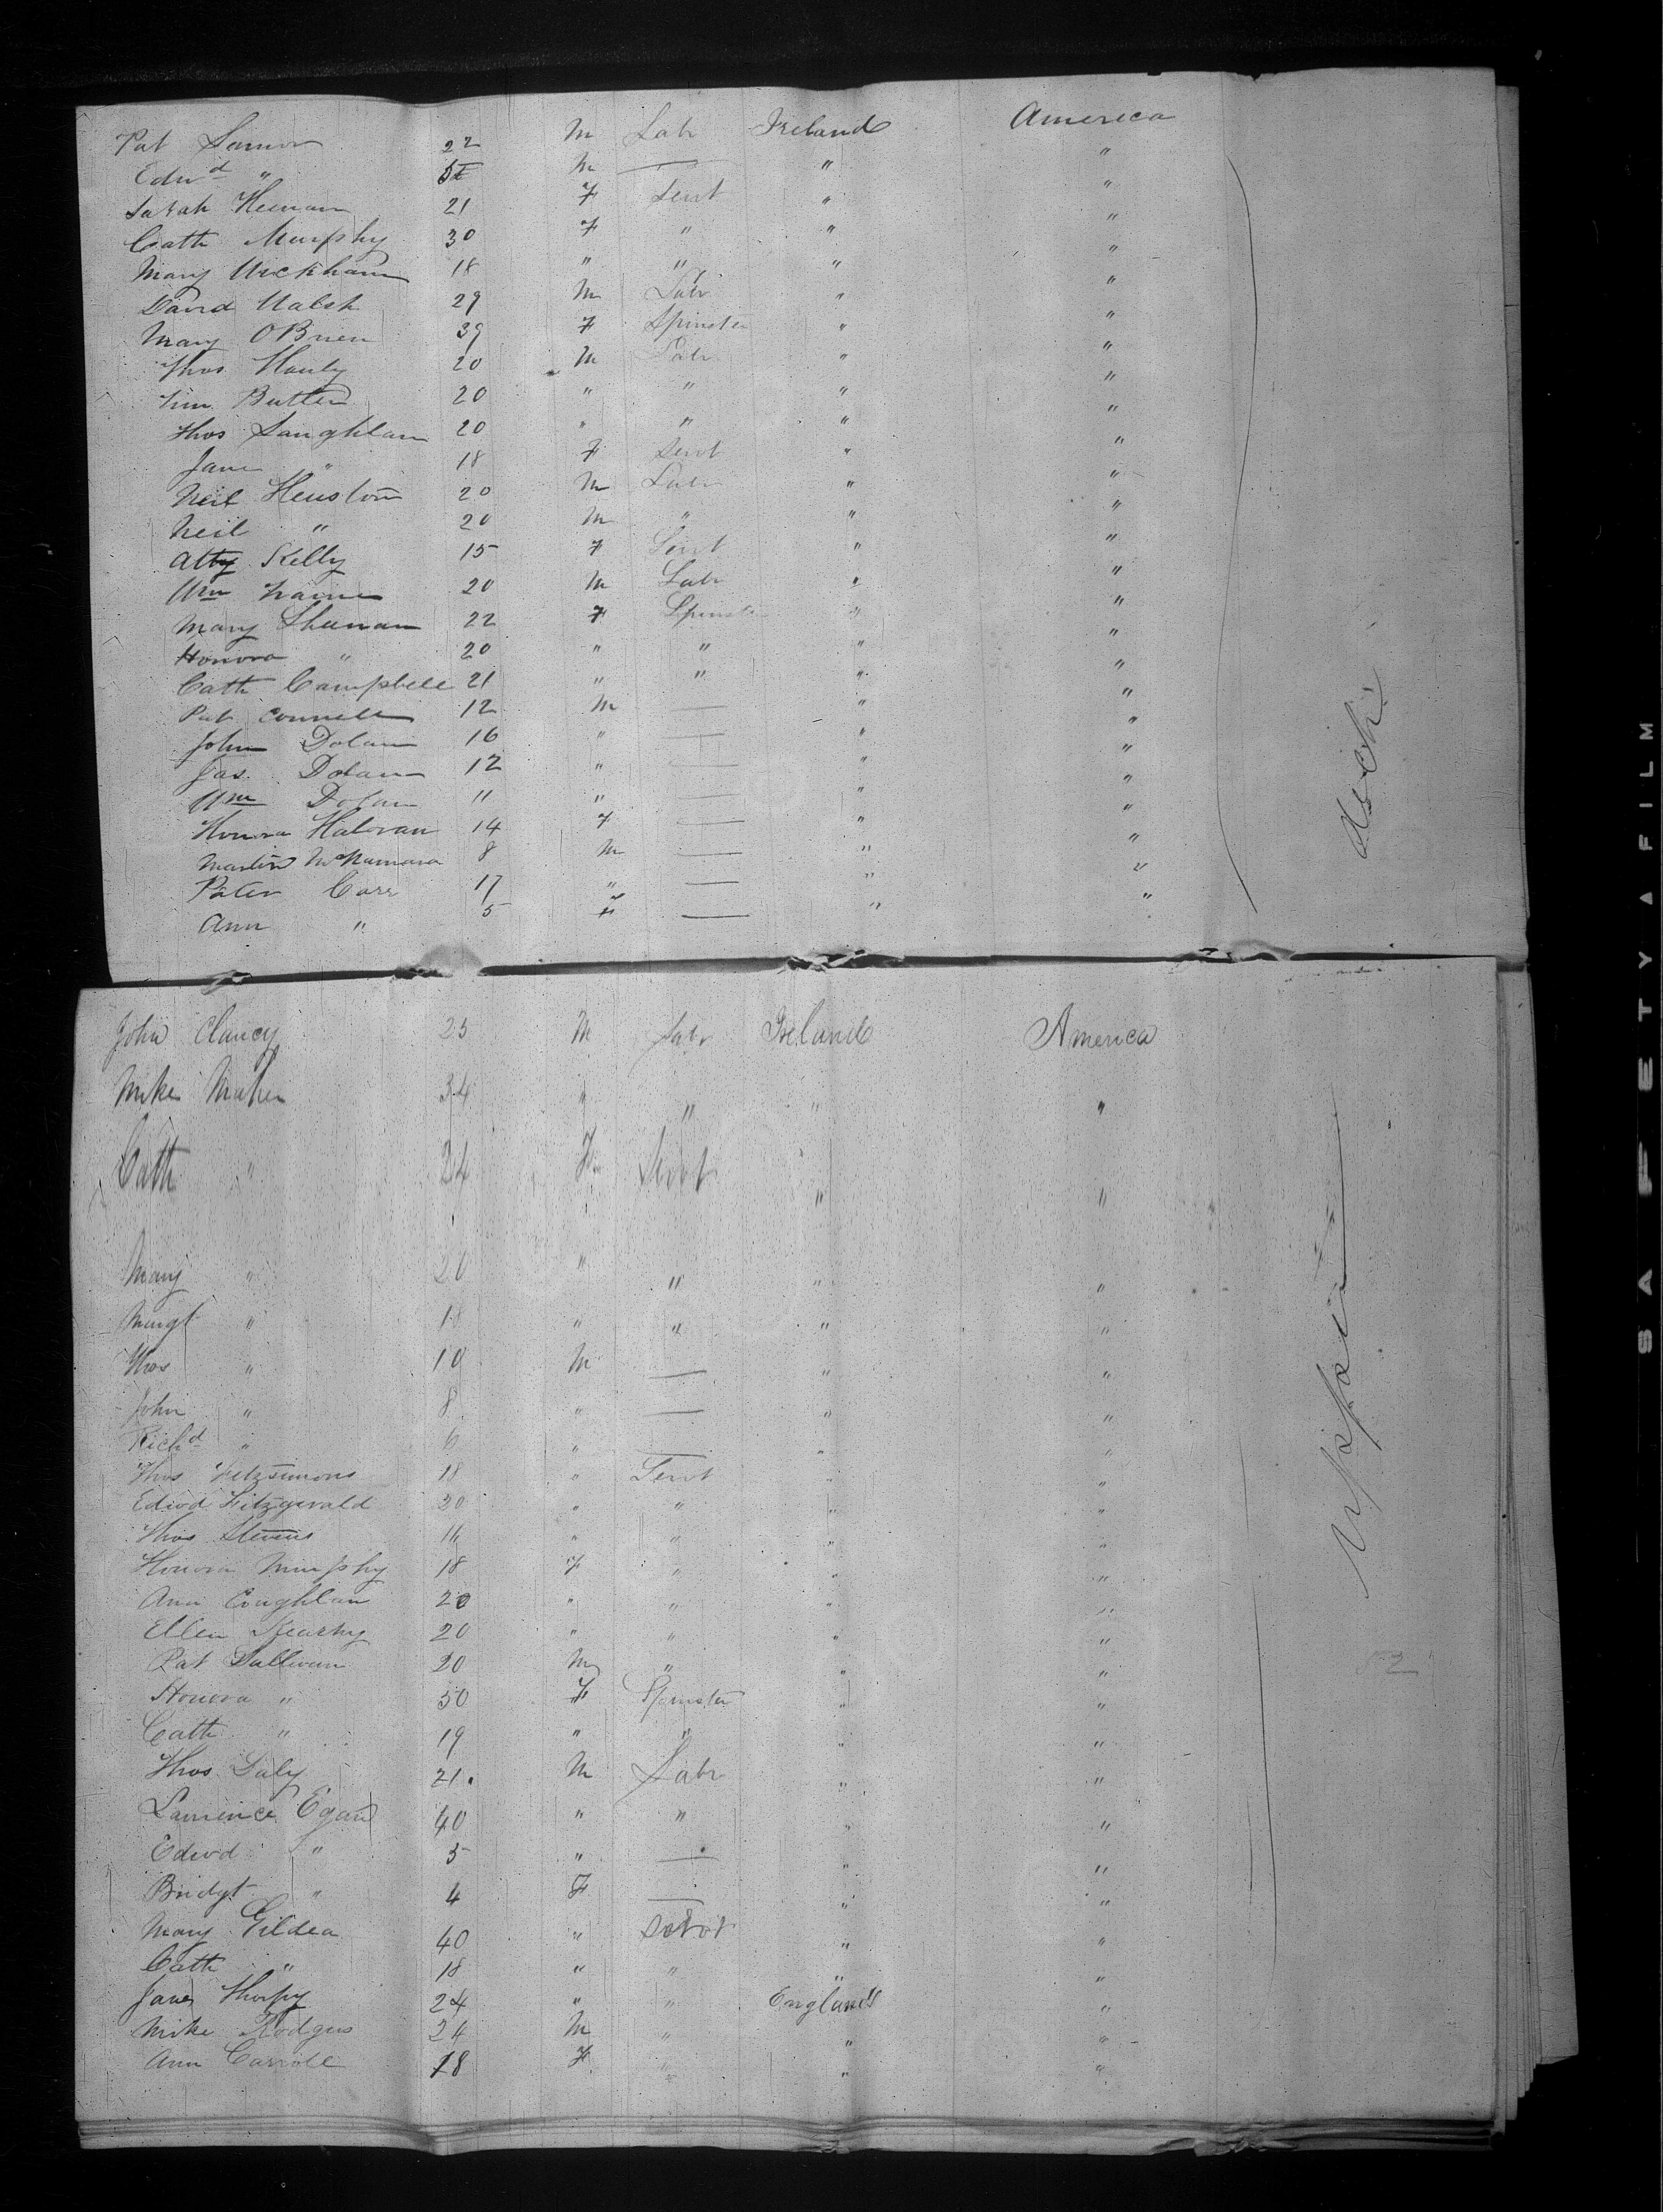 Pat 22 M Labr Ireland America
Edwd " M — " "
Sarah Heenan 21 F Sevt " "
Cath Murphy 30 F " " "
Mary Wickham 18 " " " "
David Walsh 29 M Labr " "
Mary OBrien 39 F Spinster " "
Thos Hanly 20 M Labr " "
Jim Butler 20 " " " "
Thos Laughlan 20 " " " "
Jane " 18 F Sevt " "
Neil Heuston 20 M Labr " "
Neil " 20 M " " "
Atty Kelly 15 F Sevt " "
Wm 20 M Labr " "
Mary Sheenan 22 F Spinster " "
Honora " 20 " " " "
Cath Campbell 21 " " " "
Pat Connell 12 M — " "
John Dolan 16 " — " "
Jas. Dolan 12 " — " "
Wm Dolan 11 " — " "
Honora Haloran 14 F — " "
Martin McNamara 8 M — " "
Peter Carr 17 " — " "
Ann " 5 F — " "
Decks
John Clancy 25 M Labr Ireland America
Mike Maher 34 " " " "
Cath " 24 F Servt " "
Mary " 20 " " " "
Margt " 18 " " " "
Thos " 10 M — " "
John " 8 " — " "
Richd " 6 " — " "
Thos Fitzsimons 18 " Servt " "
Edwd Fitzgerald 20 " " " "
Thos Stevens 16 " " " "
Honora Murphy 18 F " " "
Ann Coughlan 20 " " " "
Ellen Kearny 20 " " " "
Pat Sullivan 20 M " " "
Honora " 50 F Spinster " "
Cath " 19 " " " "
Thos Daly 21. M Labr " "
Laurence Egan 40 " " " "
Edwd " 5 " — " "
Bridgt " 4 F — " "
Mary Gildea 40 " Servt " "
Cath " 18 " " " "
Jane Thorpy 24 " " England "
Mike Rodgers 24 M " " "
Ann Carroll 18 F " " "
Upper
2
SAFETY FILM